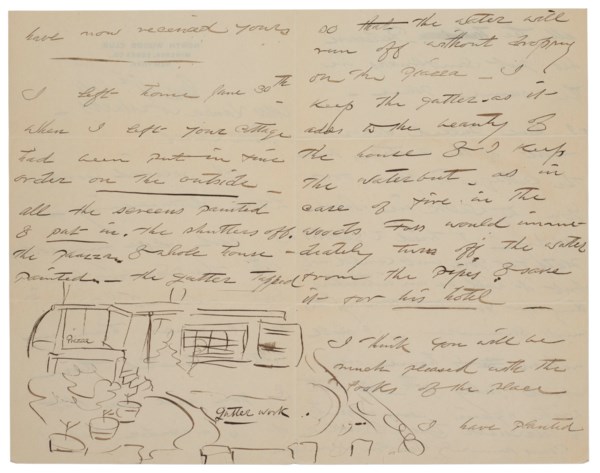 have now received yours
I left home June 30th
when I left your cottage
had been put in fine
order on the outside —
all the screens painted
& put in. the shutters off.
the piazza & whole house —
painted — the gutter tipped
so that the water will
run off without dropping
on the piazza — I
keep the gutter as it
adds to the beauty of
the house & I keep
the waterbut, as in
case of fire in the
woods Foss would imme-
diately turn off the water
from the pipes & save
it for his hotel —
I think you will be
much pleased with the
looks of the place
I have planted
Piazza
gutter work